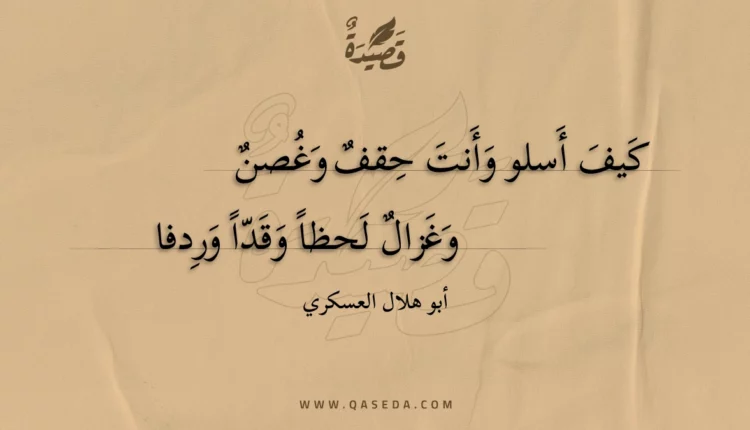 قَصِيدَةٌ
كَيفَ أَسلو وَأَنتَ حِقفٌ وَغُصنٌ
وَغَزالٌ لَحظاً وَقَدّاً وَرِدفا
أبو هلال العسكري
WWW.QASEDA.COM